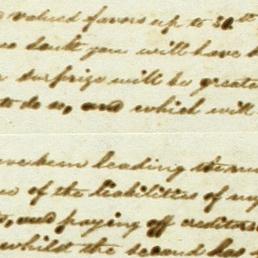 valued favors up to 30th
doubt you will have
surprize will be greate
to do so, and which will
been leading
of the liabilities of my
and paying off creditors
whilst the second has